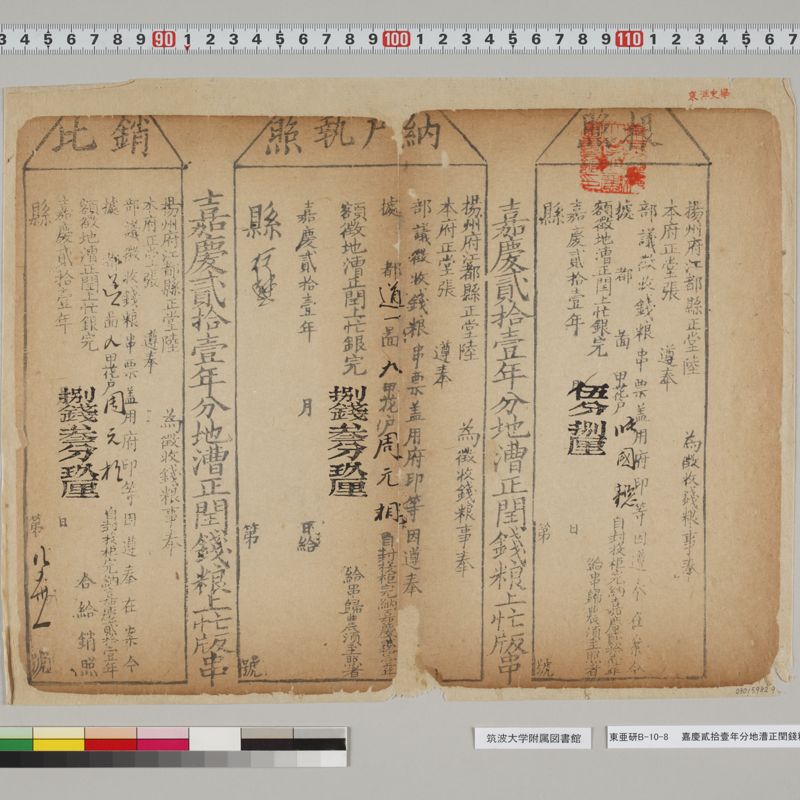 3 4 5 6 7 8 9 90 1 2 3 4 5 6 7 8 9 100 1 2 3 4 5 6 7 8 9 110 1 2 3 4 5 6 7
東洋史學
根照
揚州府江都縣正堂陸 為徵收錢粮事奉
本府正堂張 遵奉
部議徵收錢粮串票盖用府印等因遵 今在案今
據 都 啚 甲花户 國 自封投櫃完納
額徵地漕正閏上忙銀完 伍分捌厘 給串歸農須至照者
嘉慶貳拾壹年 日
縣 第 號
嘉慶貳拾壹年分地漕正閏錢粮上忙版串
納户執照
揚州府江都縣正堂陸 為徵收錢粮事奉
本府正堂張 遵奉
部議徵收錢粮串票盖用府印等因遵奉
據 都道一啚九甲花户周元相 自封投櫃完納嘉慶
額徵地漕正閏上忙銀完 捌錢叁分玖厘 給串歸農須至照者
嘉慶貳拾壹年 月 日給
縣 第 號
嘉慶貳拾壹年分地漕正閏錢粮上忙版串
銷比
揚州府江都縣正堂陸 為徵收錢粮事奉
本府正堂張 遵奉
部議徵收錢粮串票盖用府印等因遵奉在案今
據 都 啚 九甲花户周元 自封投櫃完納嘉慶貳拾壹年
額徵地漕正閏上忙銀完 捌錢叁分玖厘 合給銷照
嘉慶貳拾壹年 日
縣 第 號
0301598249
筑波大学附属図書館
東亜研B-10-8 嘉慶貳拾壹年分地漕正閏錢粮